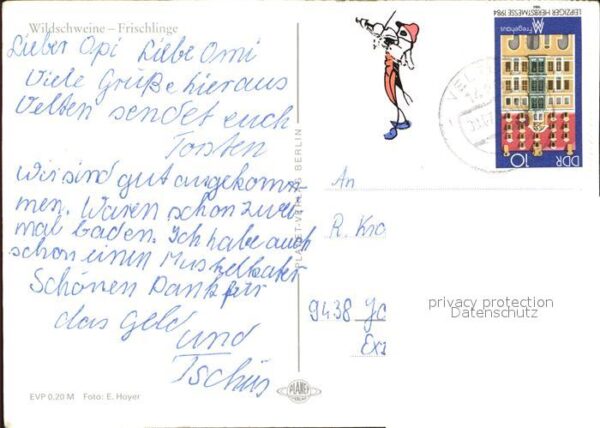 Wildschweine – Frischlinge
Lieber Opi Liebe Omi
Viele Grüße hier aus
Velten sendet euch
Torsten
Wir sind gut angekom
men. Waren schon zwei
mal baden. Ich habe auch
schon einen Muskelkater
Schönen Dank für
das Geld
und
Tschüs
EVP 0,20 M Foto: E. Hoyer
PLANET-VERLAG BERLIN
PLANET
LEIPZIGER HERBSTMESSE 1984
Fregehaus
DDR 10
An
R. Kro
9438 Jo
Erz
privacy protection
Datenschutz